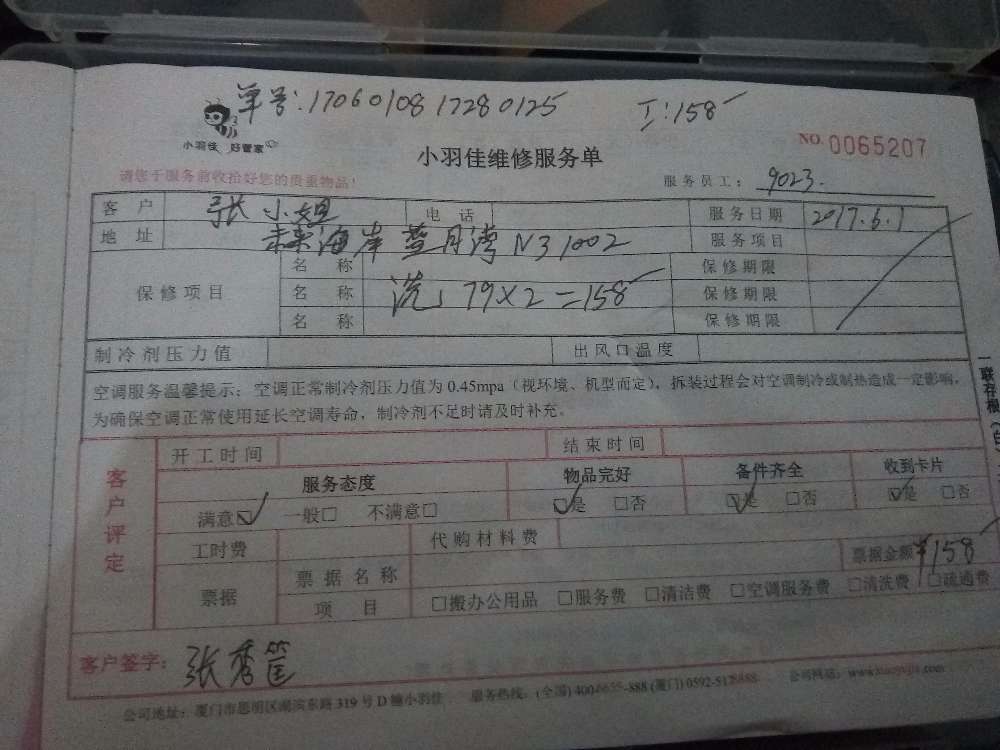 单号:1706010817280125 工:158
小羽佳 好管家
小羽佳维修服务单
NO. 0065207
请您于服务前收拾好您的贵重物品!
服务员工: 9023.
客户 张小姐 电话 服务日期 2017.6.1
地址 未来海岸蓝月湾N31002 服务项目
保修项目
名称 保修期限
名称 洗 79×2=158 保修期限
名称 保修期限
制冷剂压力值 出风口温度
空调服务温馨提示:空调正常制冷剂压力值为0.45mpa(视环境、机型而定),拆装过程会对空调制冷或制热造成一定影响,
为确保空调正常使用延长空调寿命,制冷剂不足时请及时补充。
一联存根(白)
客户评定
开工时间 结束时间
服务态度 物品完好 备件齐全 收到卡片
满意☑ 一般□ 不满意□ ☑是 □否 ☑是 □否 ☑是 □否
工时费 代购材料费
票据 票据名称 票据金额 ¥158
项目 □搬办公用品 □服务费 □清洁费 □空调服务费 □清洗费 □疏通费
客户签字: 张秀筐
公司地址:厦门市思明区湖滨东路319号D幢小羽佳 服务热线:(全国)400-6655-888(厦门)0592-5128888 公司网站:www.xiaoyujia.com